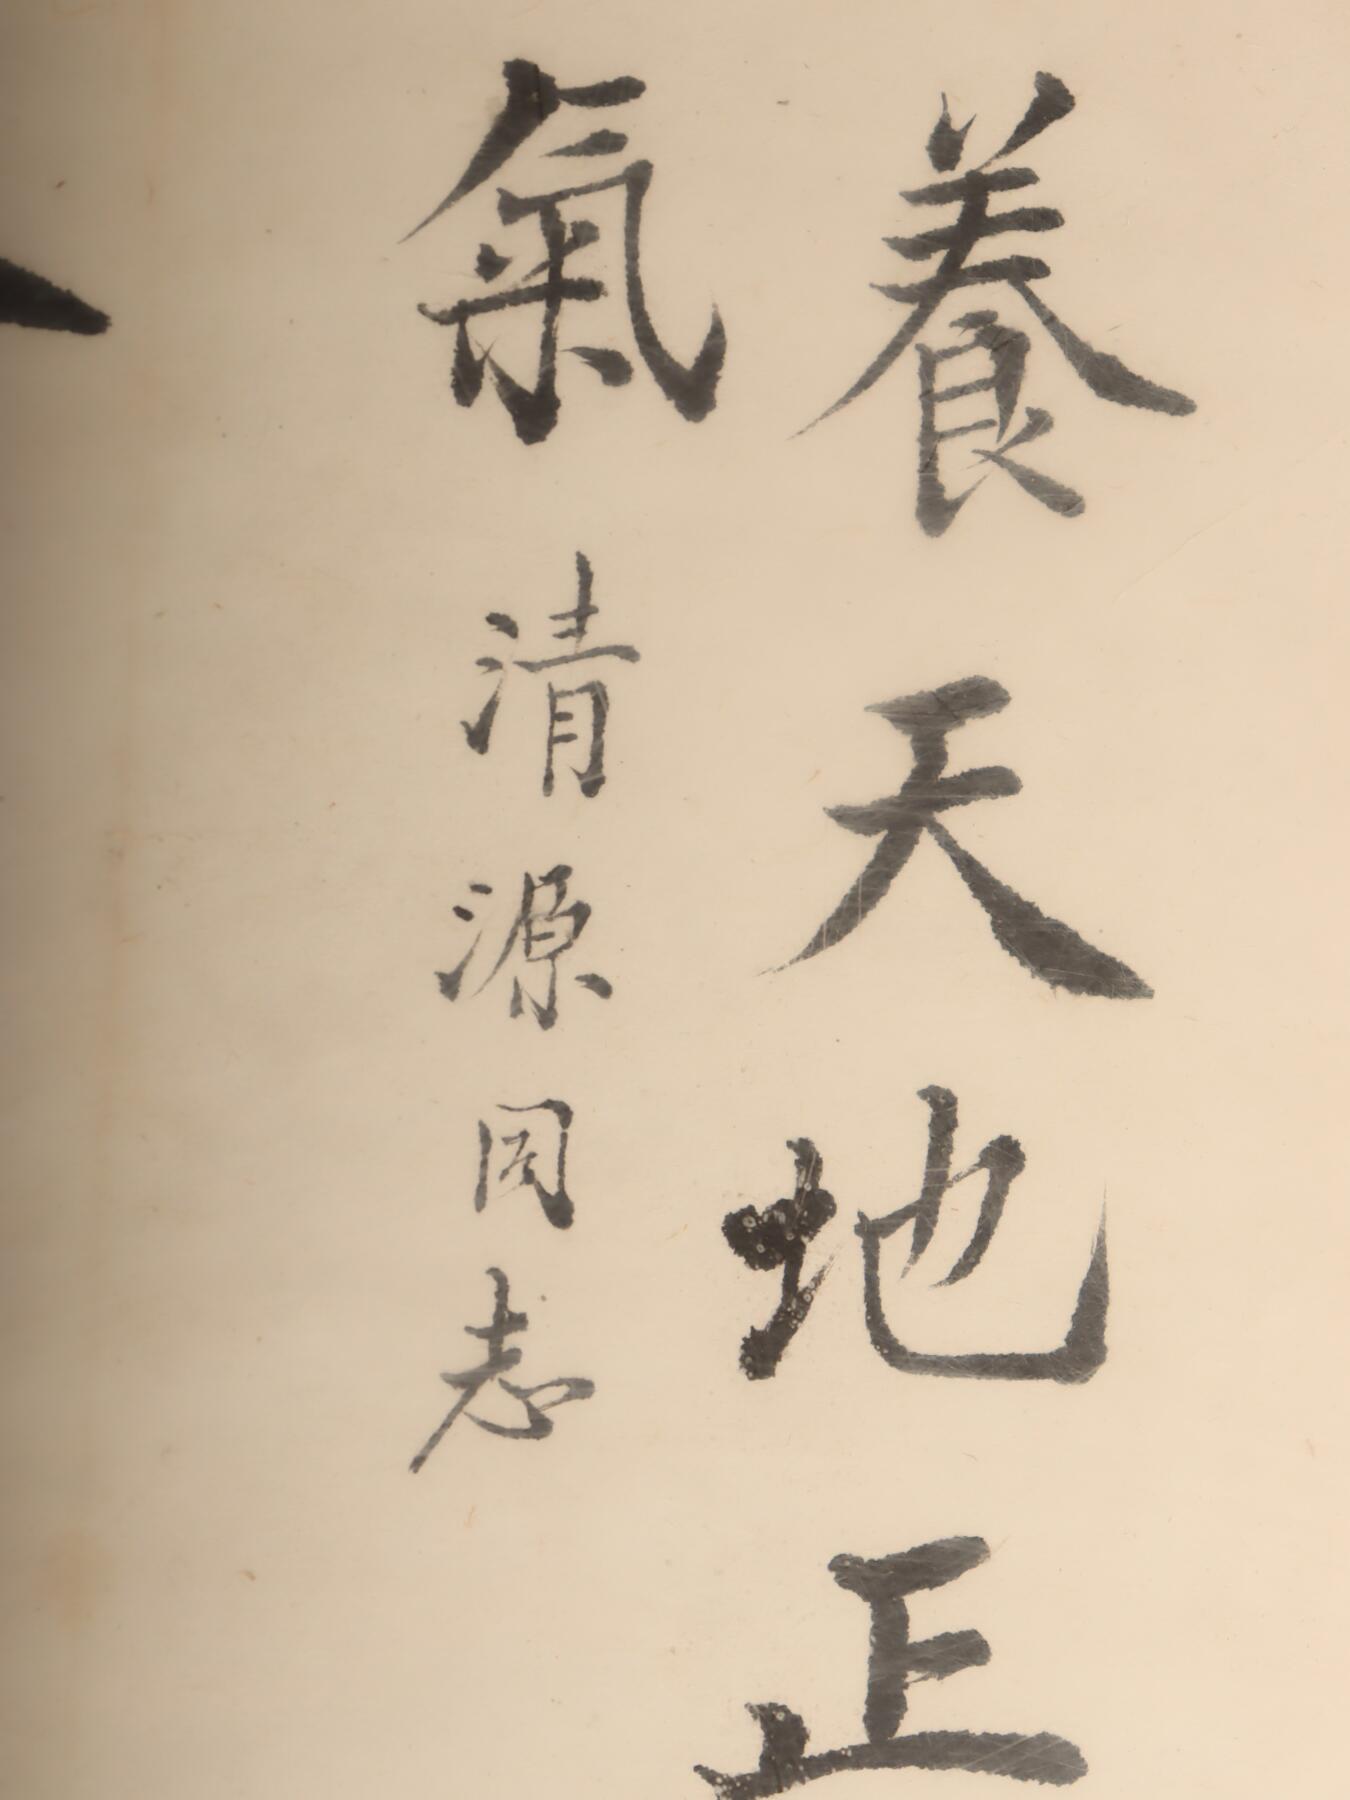 養天地正
氣清源同志